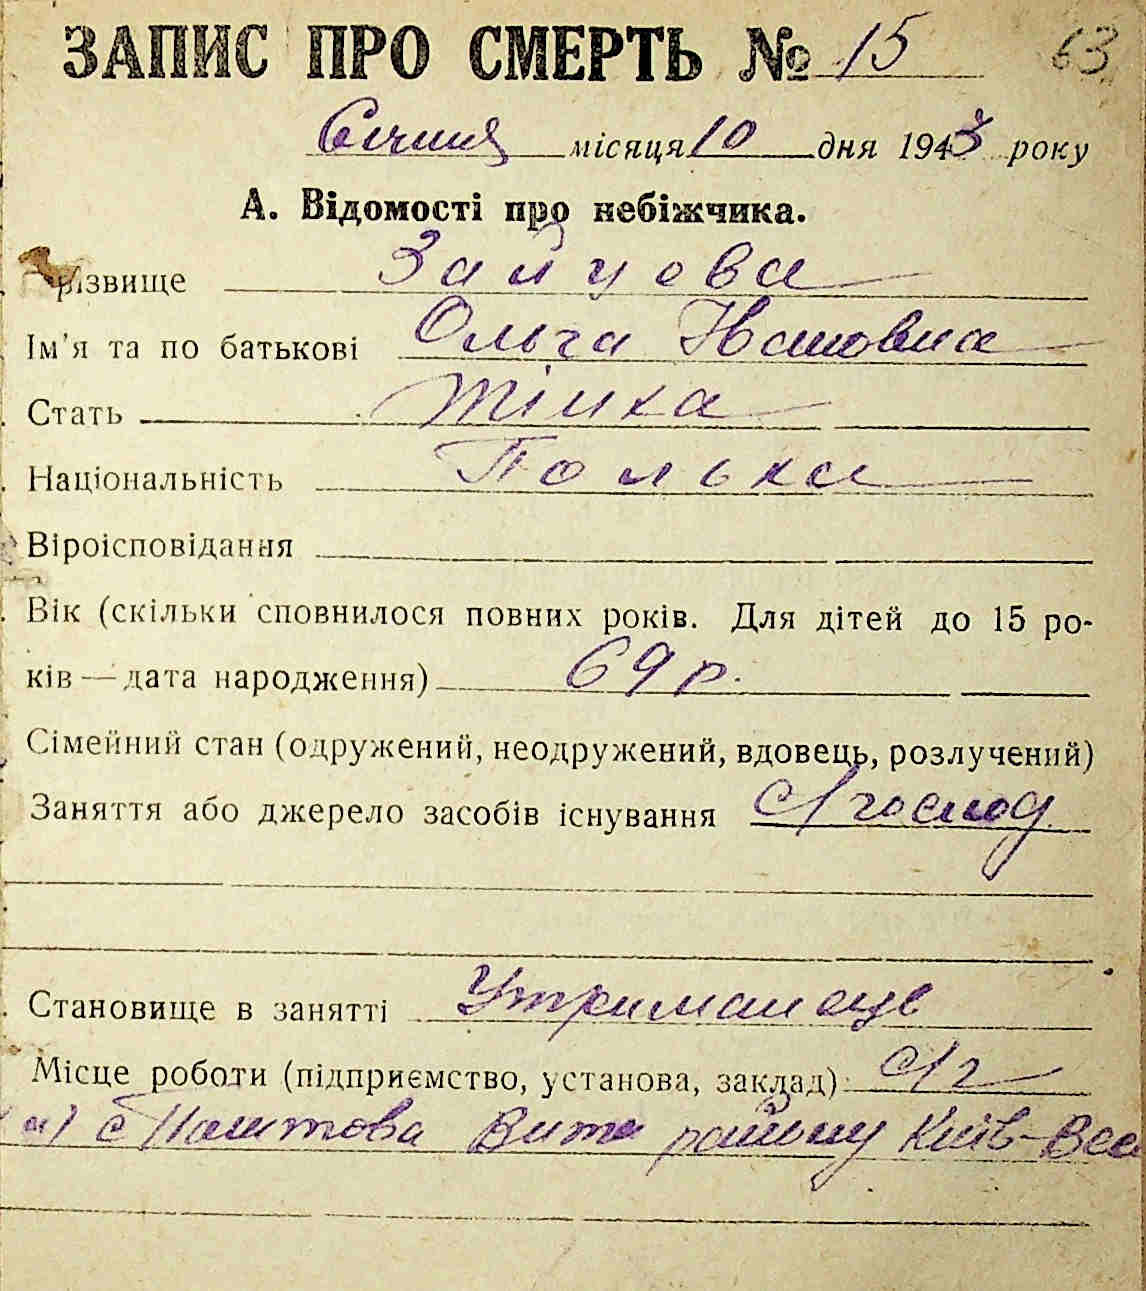 ЗАПИС ПРО СМЕРТЬ № 15 63
Січня місяця 10 дня 1943 року
А. Відомості про небіжчика.
Прізвище Зайцева
Ім'я та по батькові Ольга Івановна
Стать Жінка
Національність Полька
Віроісповідання
Вік (скільки сповнилося повних років. Для дітей до 15 ро-
ків — дата народження) 69 р.
Сімейний стан (одружений, неодружений, вдовець, розлучений)
Заняття або джерело засобів існування с/господ.
Становище в занятті Утриманець
Місце роботи (підприємство, установа, заклад) с/г
с Паштова Вита району Київ-Вас